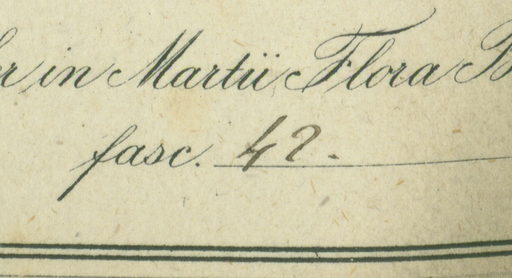 in Martii Flora
fasc. 42.